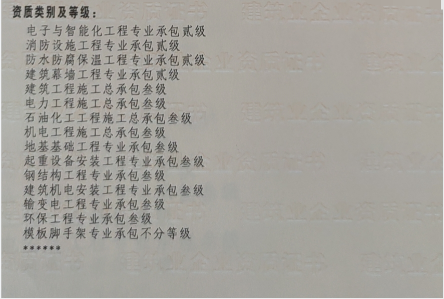 资质类别及等级：
电子与智能化工程专业承包贰级
消防设施工程专业承包贰级
防水防腐保温工程专业承包贰级
建筑幕墙工程专业承包贰级
建筑工程施工总承包叁级
电力工程施工总承包叁级
石油化工工程施工总承包叁级
机电工程施工总承包叁级
地基基础工程专业承包叁级
起重设备安装工程专业承包叁级
钢结构工程专业承包叁级
建筑机电安装工程专业承包叁级
输变电工程专业承包叁级
环保工程专业承包叁级
模板脚手架专业承包不分等级
******